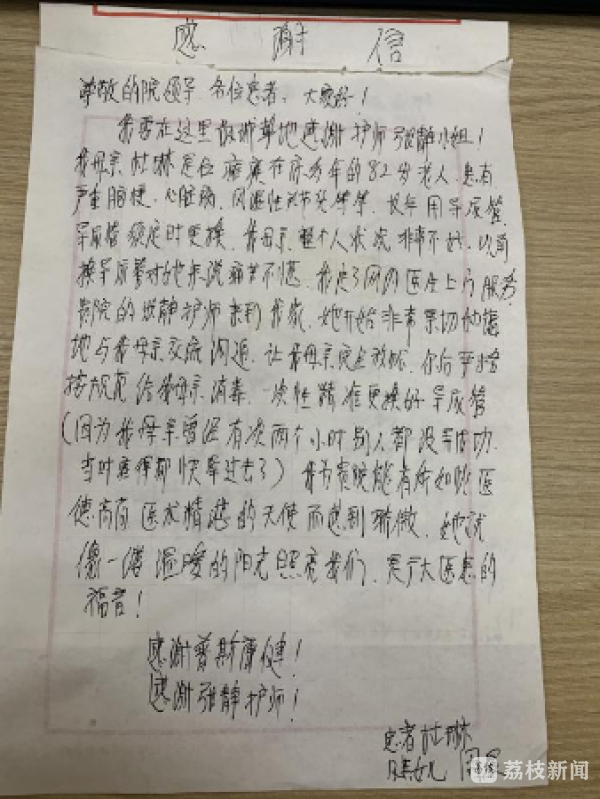 感谢信
尊敬的院领导、各位患者、大家好！
我要在这里最诚挚地感谢护师张静小姐！
我母亲杜琳是位瘫痪在床多年的82岁老人，患有
严重脑梗、心脏病、风湿性关节炎等等，长年用导尿管，
导尿管须定时更换，我母亲整个人状况非常不好，以前
换导尿管对她来说痛苦不堪，我找了网约医生上门服务
贵院的张静护师来到我家，她开始非常亲切和蔼
地与我母亲交流沟通，让我母亲完全放松，尔后严格
按规范给我母亲消毒，一次性精准更换好导尿管
（因为我母亲曾经有次两个小时别人都没导成功
当时疼得都快晕过去了）我为贵院能有如此医
德高尚医术精湛的天使而感到骄傲，她就
像一缕温暖的阳光照亮我们，是广大医患的
福音！
感谢普斯康健！
感谢张静护师！
患者杜琳
荔枝新闻